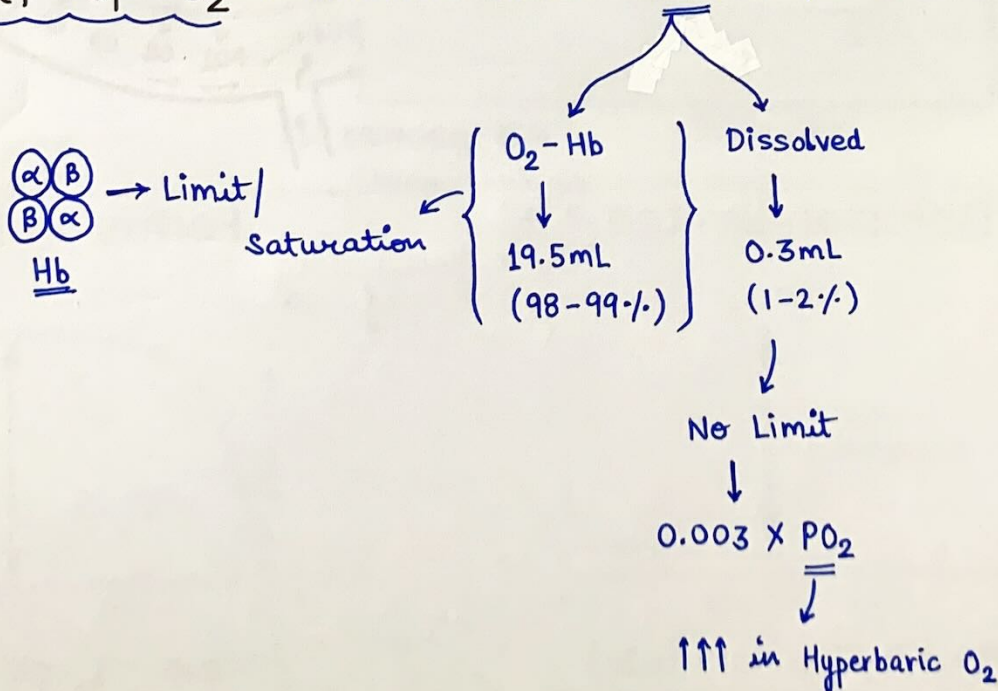 2
α β → Limit/
β α
Saturation
Hb
O₂-Hb
↓
19.5mL
(98-99%)
Dissolved
↓
0.3mL
(1-2%)
↓
No Limit
↓
0.003 X PO₂
↓
↑↑↑ in Hyperbaric O₂